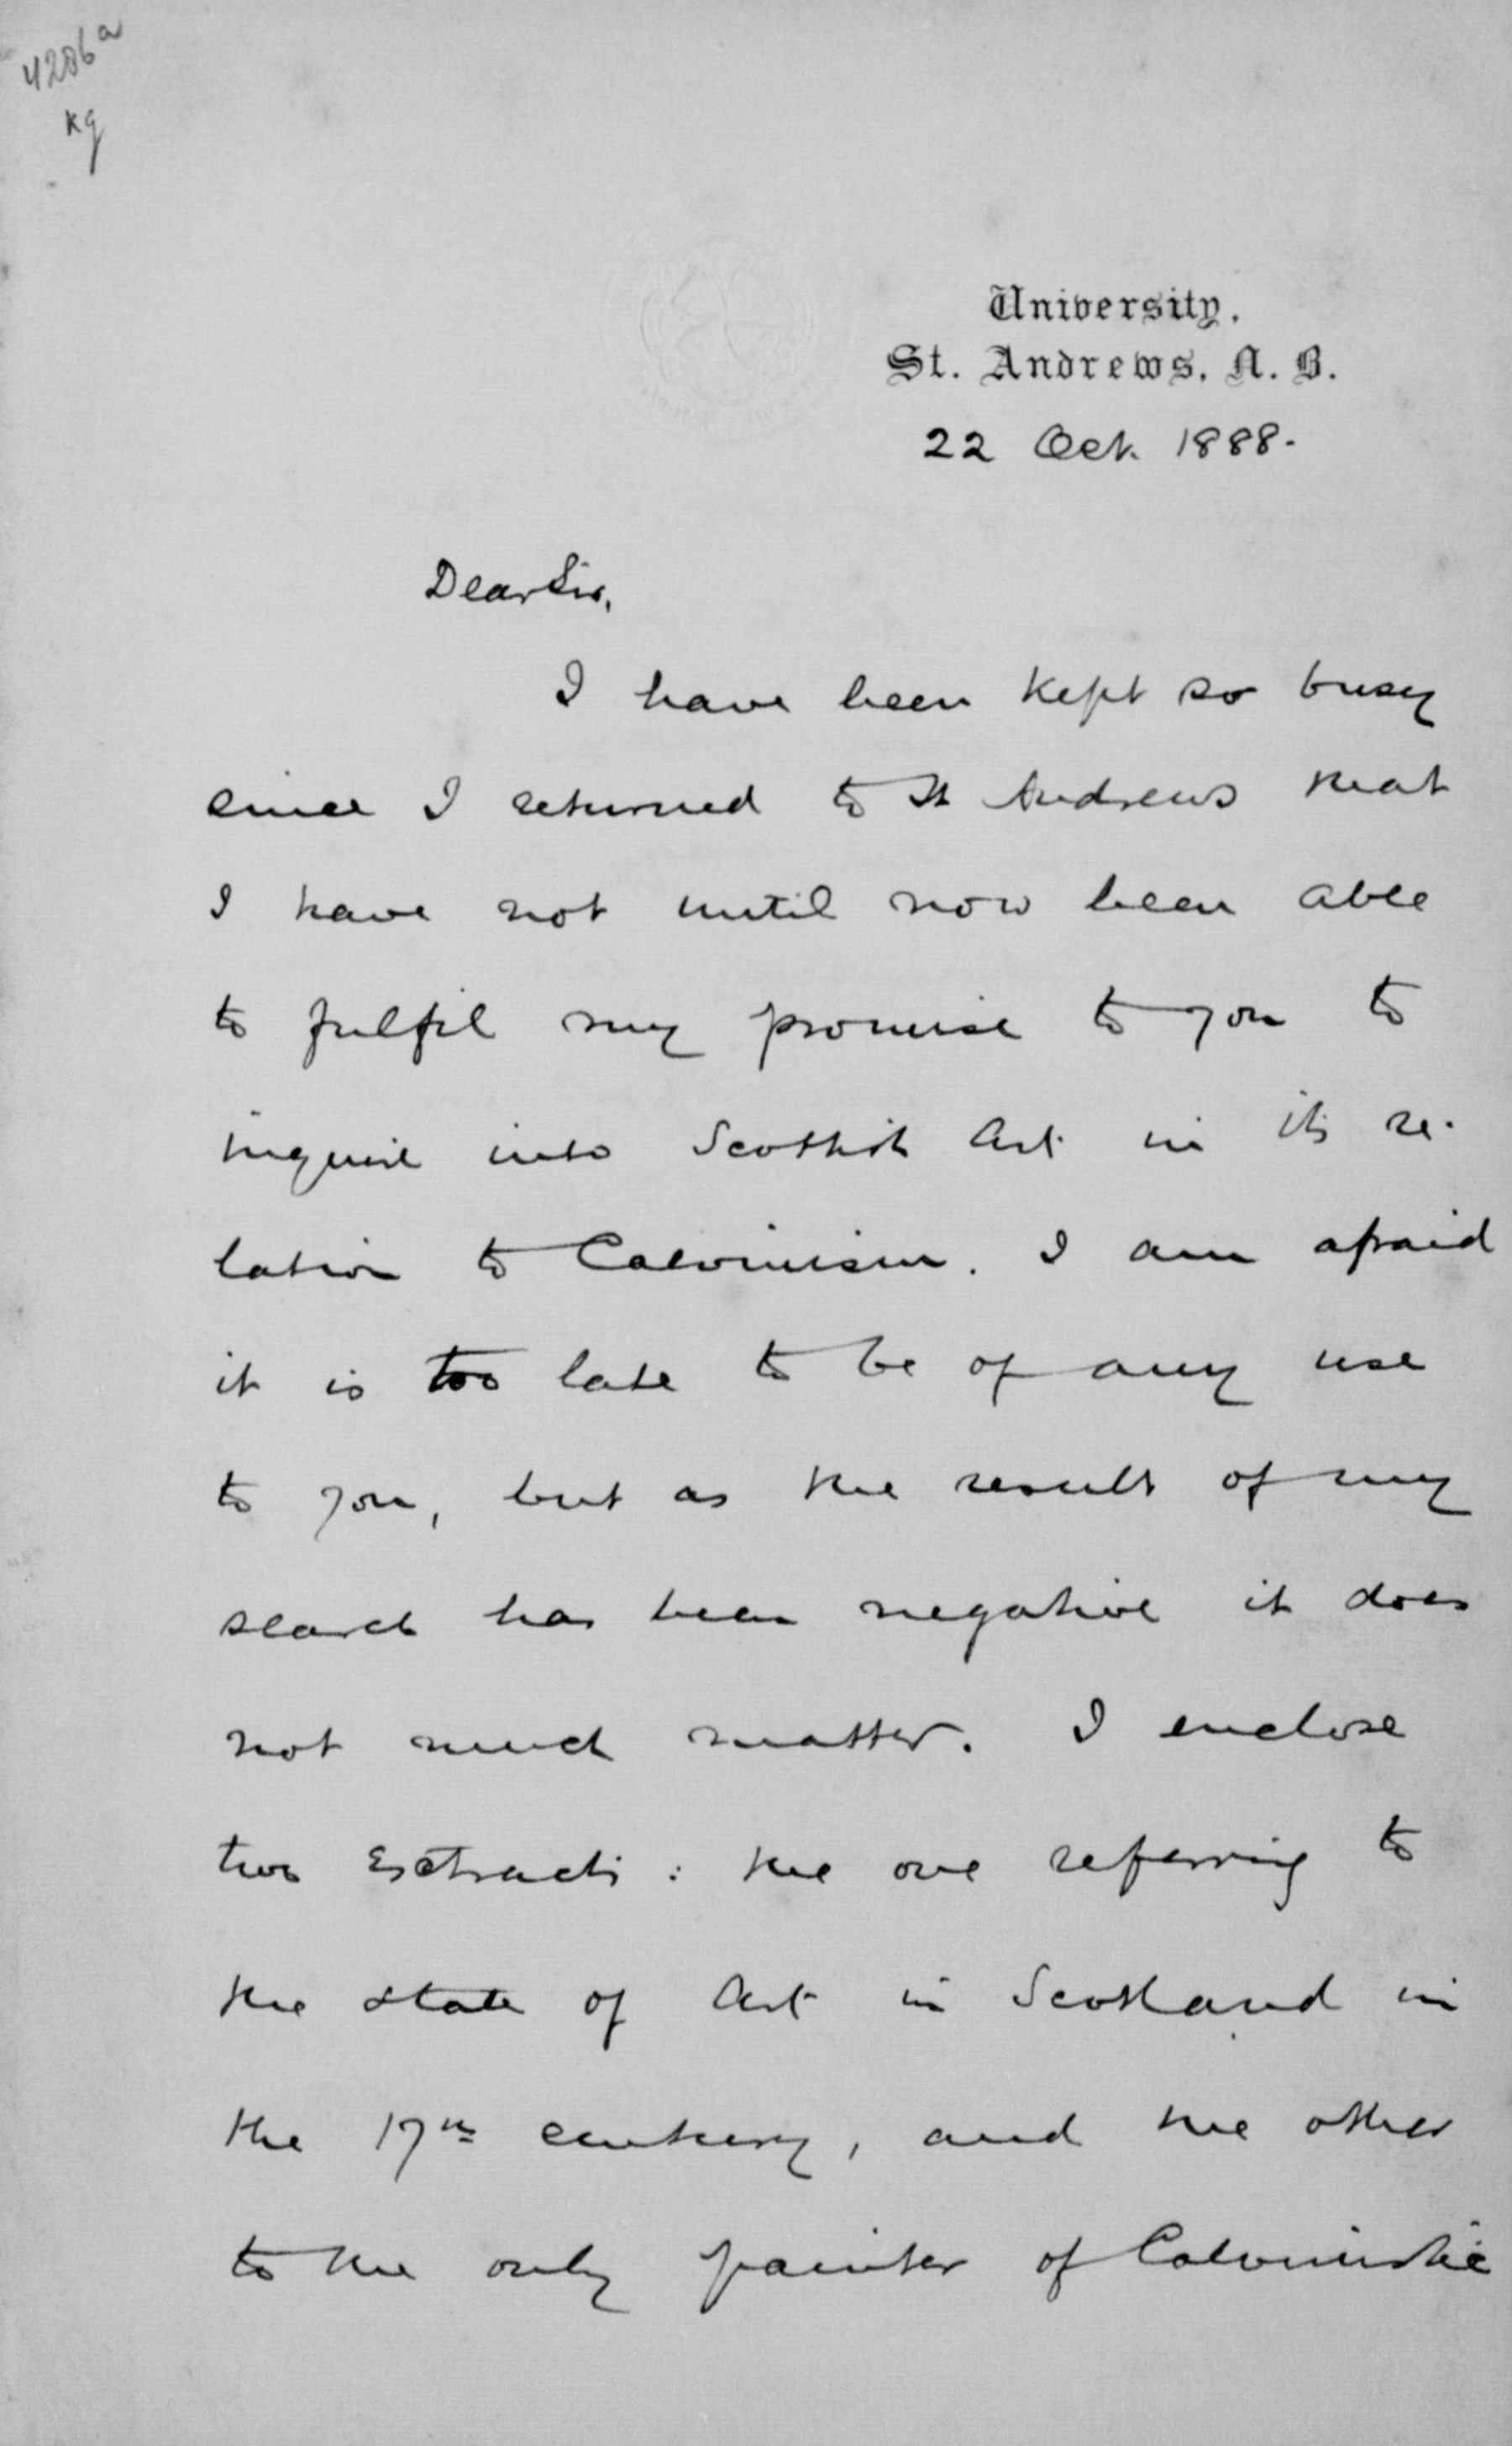 4286a
Kg
University,
St. Andrews, N. B.
22 Oct. 1888.
Dear Sir,
I have been kept so busy
since I returned to St Andrews that
I have not until now been able
to fulfil my promise to you to
inquire into Scottish Art in its re-
lation to Calvinism. I am afraid
it is too late to be of any use
to you, but as the result of my
search has been negative it does
not much matter. I enclose
two Extracts: the one referring to
the state of Art in Scotland in
the 17th century, and the other
to the only painter of Calvinistic